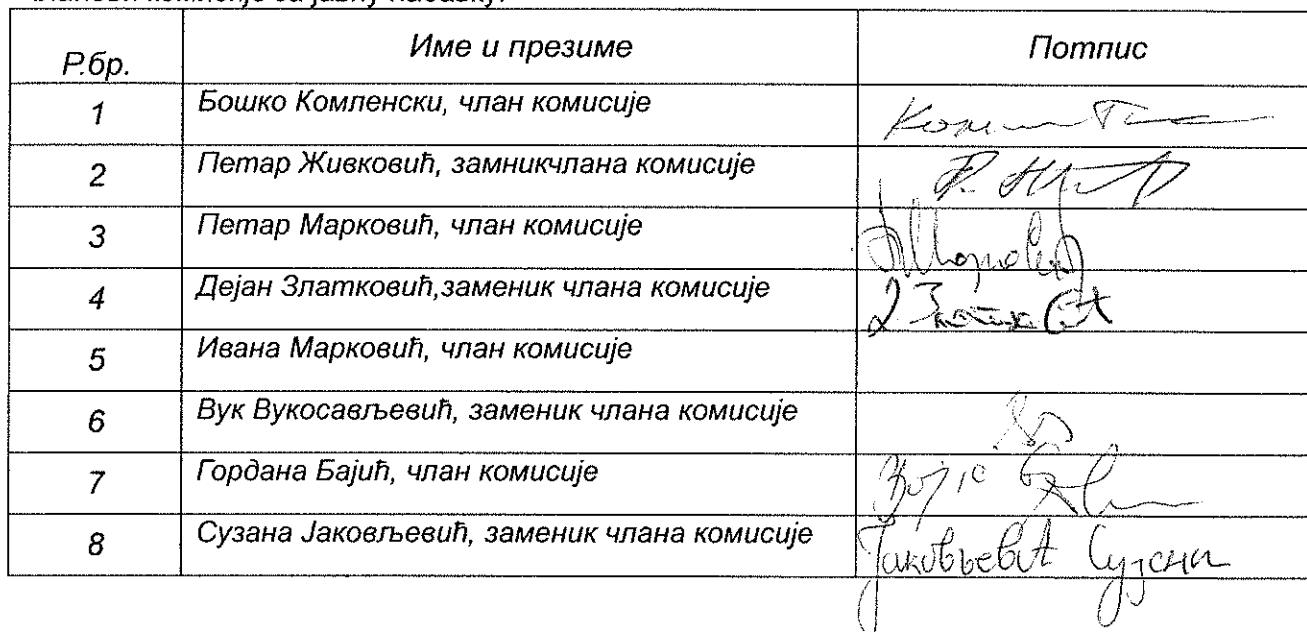 Р.бр. Име и презиме Потпис
1 Бошко Комленски, члан комисије
2 Петар Живковић, замникчлана комисије
3 Петар Марковић, члан комисије
4 Дејан Златковић,заменик члана комисије
5 Ивана Марковић, члан комисије
6 Вук Вукосављевић, заменик члана комисије
7 Гордана Бајић, члан комисије
8 Сузана Јаковљевић, заменик члана комисије Јаковљевић Сузана